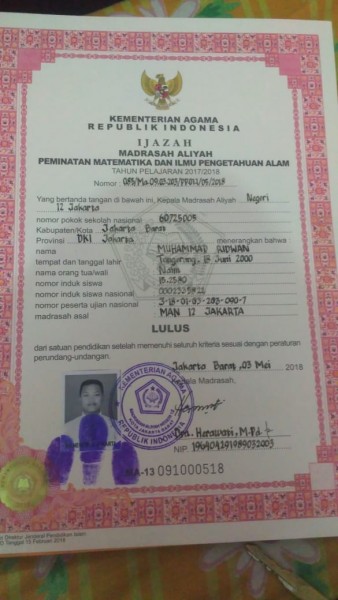 KEMENTERIAN AGAMA
REPUBLIK INDONESIA
IJAZAH
MADRASAH ALIYAH
PEMINATAN MATEMATIKA DAN ILMU PENGETAHUAN ALAM
TAHUN PELAJARAN 2017/2018
Nomor
Yang bertanda tangan di bawah ini, Kepala Madrasah Aliyah Negeri
12 Jakarta
nomor pokok sekolah nasional 60725003
Kabupaten/Kota Jakarta Barat
Provinsi DKI Jakarta menerangkan bahwa
nama MUHAMMAD RIDWAN
tempat dan tanggal lahir Tangerang, 18 Juni 2000
nama orang tua/wali Naim
nomor induk siswa
nomor induk siswa nasional
nomor peserta ujian nasional
madrasah asal MAN 12 JAKARTA
LULUS
dari satuan pendidikan setelah memenuhi seluruh kriteria sesuai dengan peraturan
perundang-undangan.
Jakarta Barat, 03 Mei 2018
Kepala Madrasah,
KEMENTERIAN AGAMA
REPUBLIK INDONESIA
Dra. Herawani, M.Pd.I
NIP. 196404291989032003
MA-13 091000518